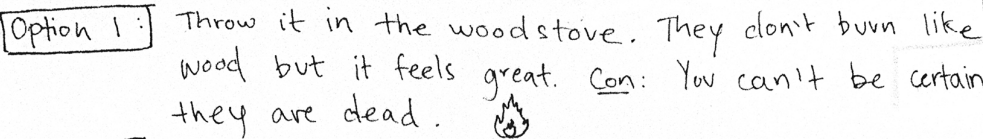 Option 1: Throw it in the woodstove. They don't burn like
wood but it feels great. Con: You can't be certain
they are dead.